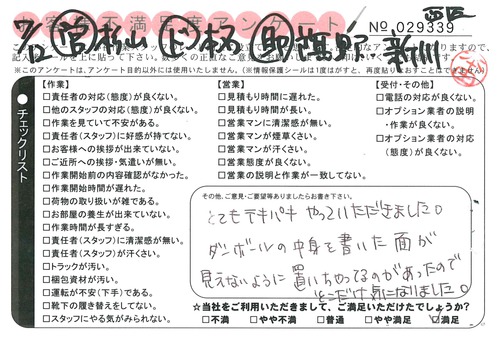 お客様不満足度アンケート
西区
No 029339
7/12 営 松山 ド 本名 助 塩野 新川
※このアンケートは、アンケート目的以外には使用いたしません。(※情報保護シールは1度がすと、再度貼りなおすことはできません)
チェックリスト
【作業】
□責任者の対応(態度)が良くない。
□他のスタッフの対応(態度)が良くない。
□作業を見ていて不安がある。
□責任者(スタッフ)に好感が持てない。
□お客様への挨拶が出来ていない。
□ご近所への挨拶・気遣いが無い。
□作業開始前の内容確認がなかった。
□作業開始時間が遅れた。
□荷物の取り扱いが雑である。
□お部屋の養生が出来ていない。
□作業時間が長すぎる。
□責任者(スタッフ)に清潔感が無い。
□責任者(スタッフ)が汗さい。
□トラックが汚い。
□梱包資材が汚い。
□運転が不安(下手)である。
□靴下の履き替えをしてない。
□スタッフにやる気がみられない。
【営業】
□見積もり時間に遅れた。
□見積もり時間が長い。
□営業マンに清潔感が無い。
□営業マンが煙草くさい。
□営業マンが汗くさい。
□営業態度が良くない。
□営業の説明と作業が一致してない。
【受付・その他】
□電話の対応が良くない。
□オプション業者の説明
・作業が良くない。
□オプション業者の対応
(態度)が良くない。
その他、ご意見・ご要望等ありましたらお書き下さい。
とてもテキパキ やっていただきました。
ダンボールの中身を書いた面が
見えないように置いちゃってるのがあったので
そこだけ気になりました。
☆当社をご利用いただきまして、ご満足いただけたでしょうか?
□不満 □やや不満 □普通 □やや満足 ☑満足